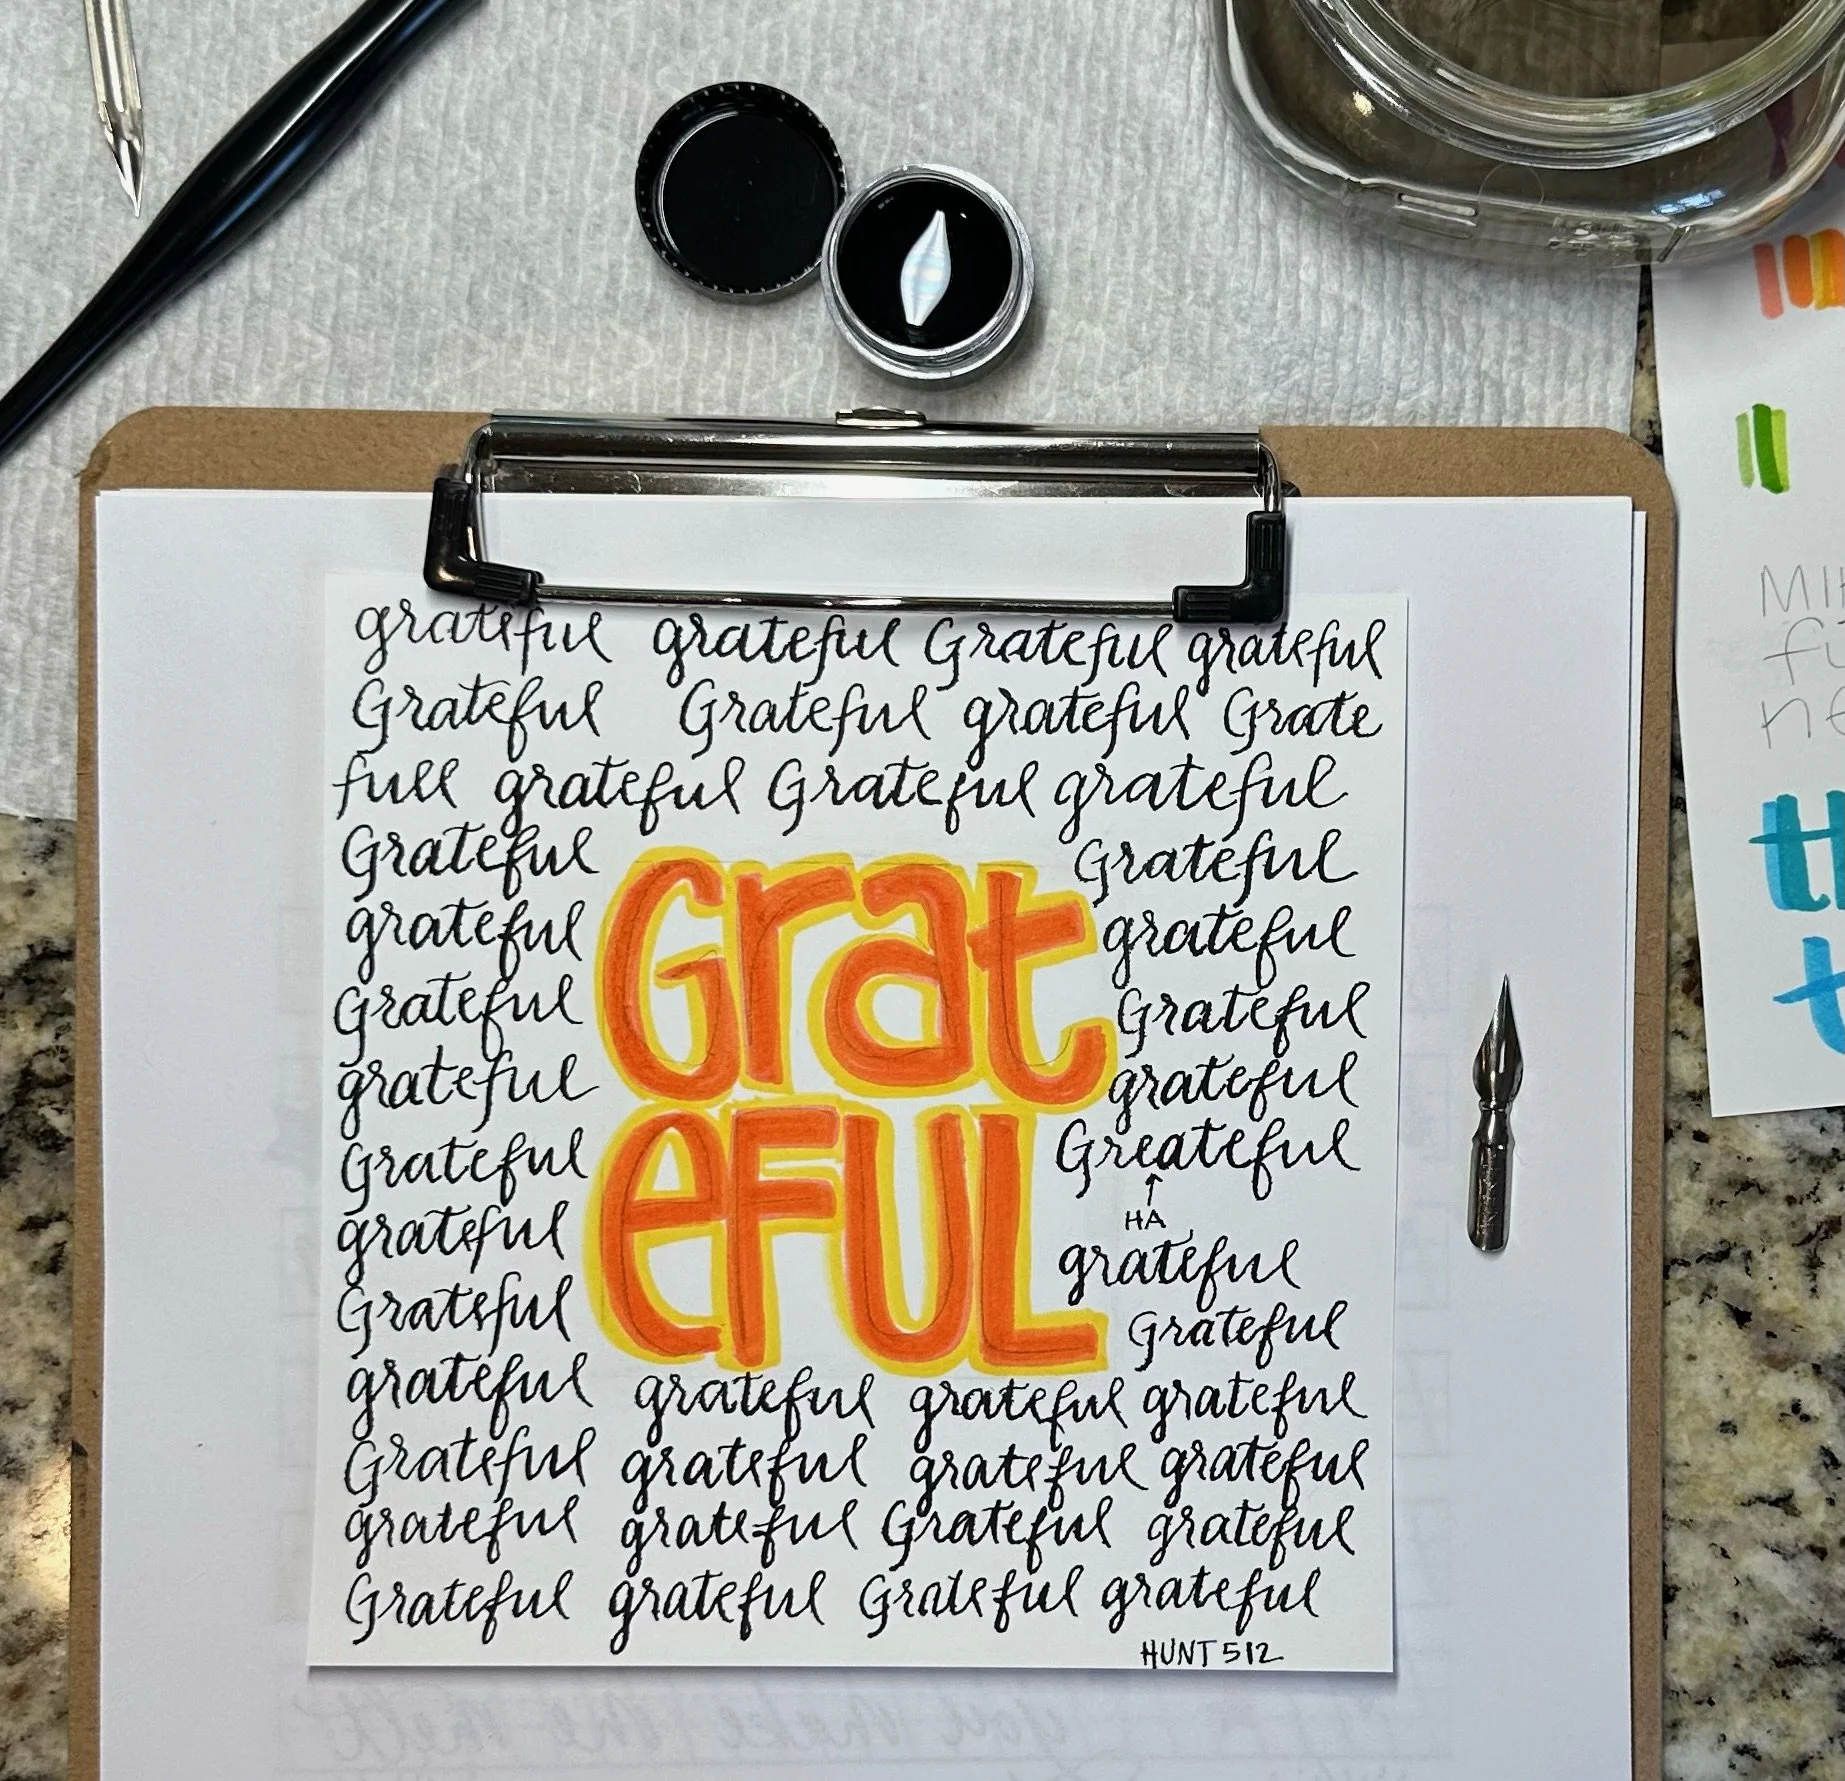 grateful grateful Grateful grateful
Grateful Grateful grateful Grate
full grateful Grateful grateful
Grateful Grateful
grateful grateful
Grateful Grateful
grateful grateful
Grateful Greateful
HA
grateful grateful
Grateful Grateful
Grat
eFUL
grateful grateful grateful grateful
Grateful grateful grateful grateful
grateful grateful Grateful grateful
Grateful grateful Grateful grateful
HUNT 512